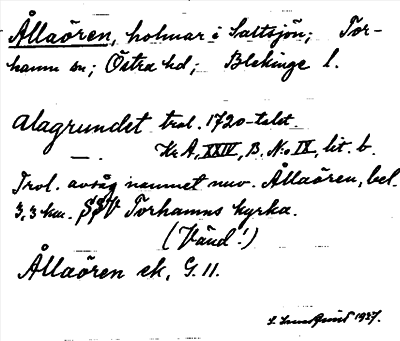 Ållaören, holmar i Saltsjön; Tor-
hamn sn; Östra hd; Blekinge l.
Alagrundet trol. 1720-talet
Kr A, XXIV, B. No IX, lit. b.
Trol. avsåg namnet nuv. Ållaören, bel.
3,3 km. SSV Torhamns kyrka.
(Vänd!)
Ållaören ek. G. 11.
1927.